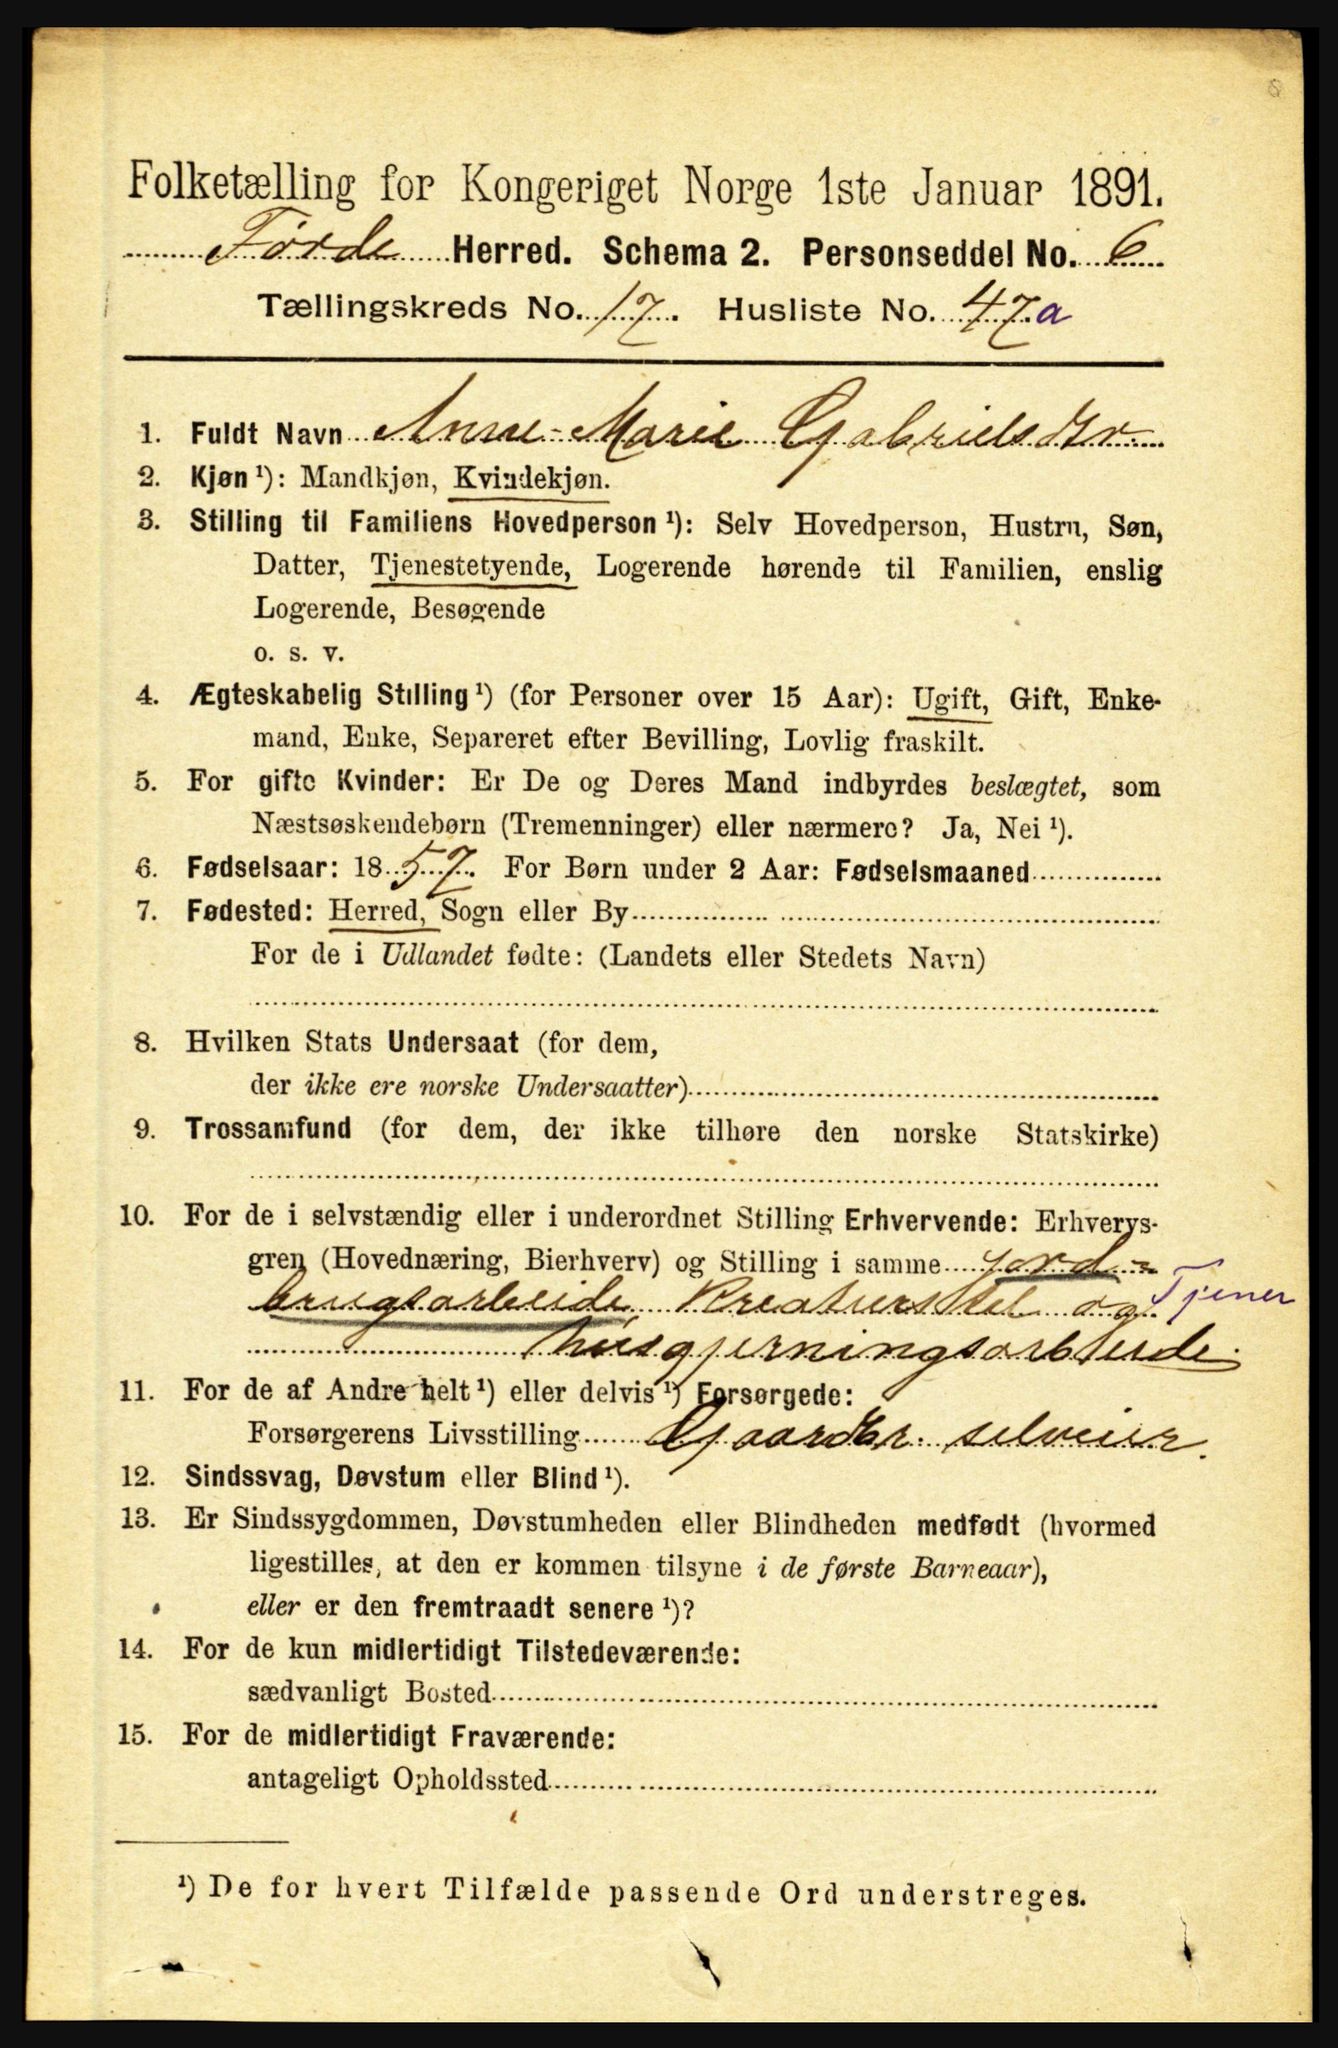 Folketælling for Kongeriget Norge 1ste Januar 1891.
Førde Herred. Schema 2. Personseddel No. 6
Tællingskreds No. 17. Husliste No. 47a
1. Fuldt Navn Anne-Marie Gabrielsdtr.
2. Kjøn ¹): Mandkjøn, Kvindekjøn.
3. Stilling til Familiens Hovedperson ¹): Selv Hovedperson, Hustru, Søn,
Datter, Tjenestetyende, Logerende hørende til Familien, enslig
Logerende, Besøgende
o. s. v.
4. Ægteskabelig Stilling ¹) (for Personer over 15 Aar): Ugift, Gift, Enke-
mand, Enke, Separeret efter Bevilling, Lovlig fraskilt.
5. For gifte Kvinder: Er De og Deres Mand indbyrdes beslægtet, som
Næstsøskendebørn (Tremenninger) eller nærmere? Ja, Nei ¹).
6. Fødselsaar: 1857. For Børn under 2 Aar: Fødselsmaaned
7. Fødested: Herred, Sogn eller By
For de i Udlandet fødte: (Landets eller Stedets Navn)
8. Hvilken Stats Undersaat (for dem,
der ikke ere norske Undersaatter)
9. Trossamfund (for dem, der ikke tilhøre den norske Statskirke)
10. For de i selvstændig eller i underordnet Stilling Erhvervende: Erhvervs-
gren (Hovednæring, Bierhverv) og Stilling i samme jord-
brugsarbeide Kreaturstel og Tjener
husgjerningsarbeide.
11. For de af Andre helt ¹) eller delvis ¹) Forsørgede:
Forsørgerens Livsstilling Gaardbr. selveier.
12. Sindssvag, Døvstum eller Blind ¹).
13. Er Sindssygdommen, Døvstumheden eller Blindheden medfødt (hvormed
ligestilles, at den er kommen tilsyne i de første Barneaar),
eller er den fremtraadt senere ¹)?
14. For de kun midlertidigt Tilstedeværende:
sædvanligt Bosted
15. For de midlertidigt Fraværende:
antageligt Opholdssted
¹) De for hvert Tilfælde passende Ord understreges.